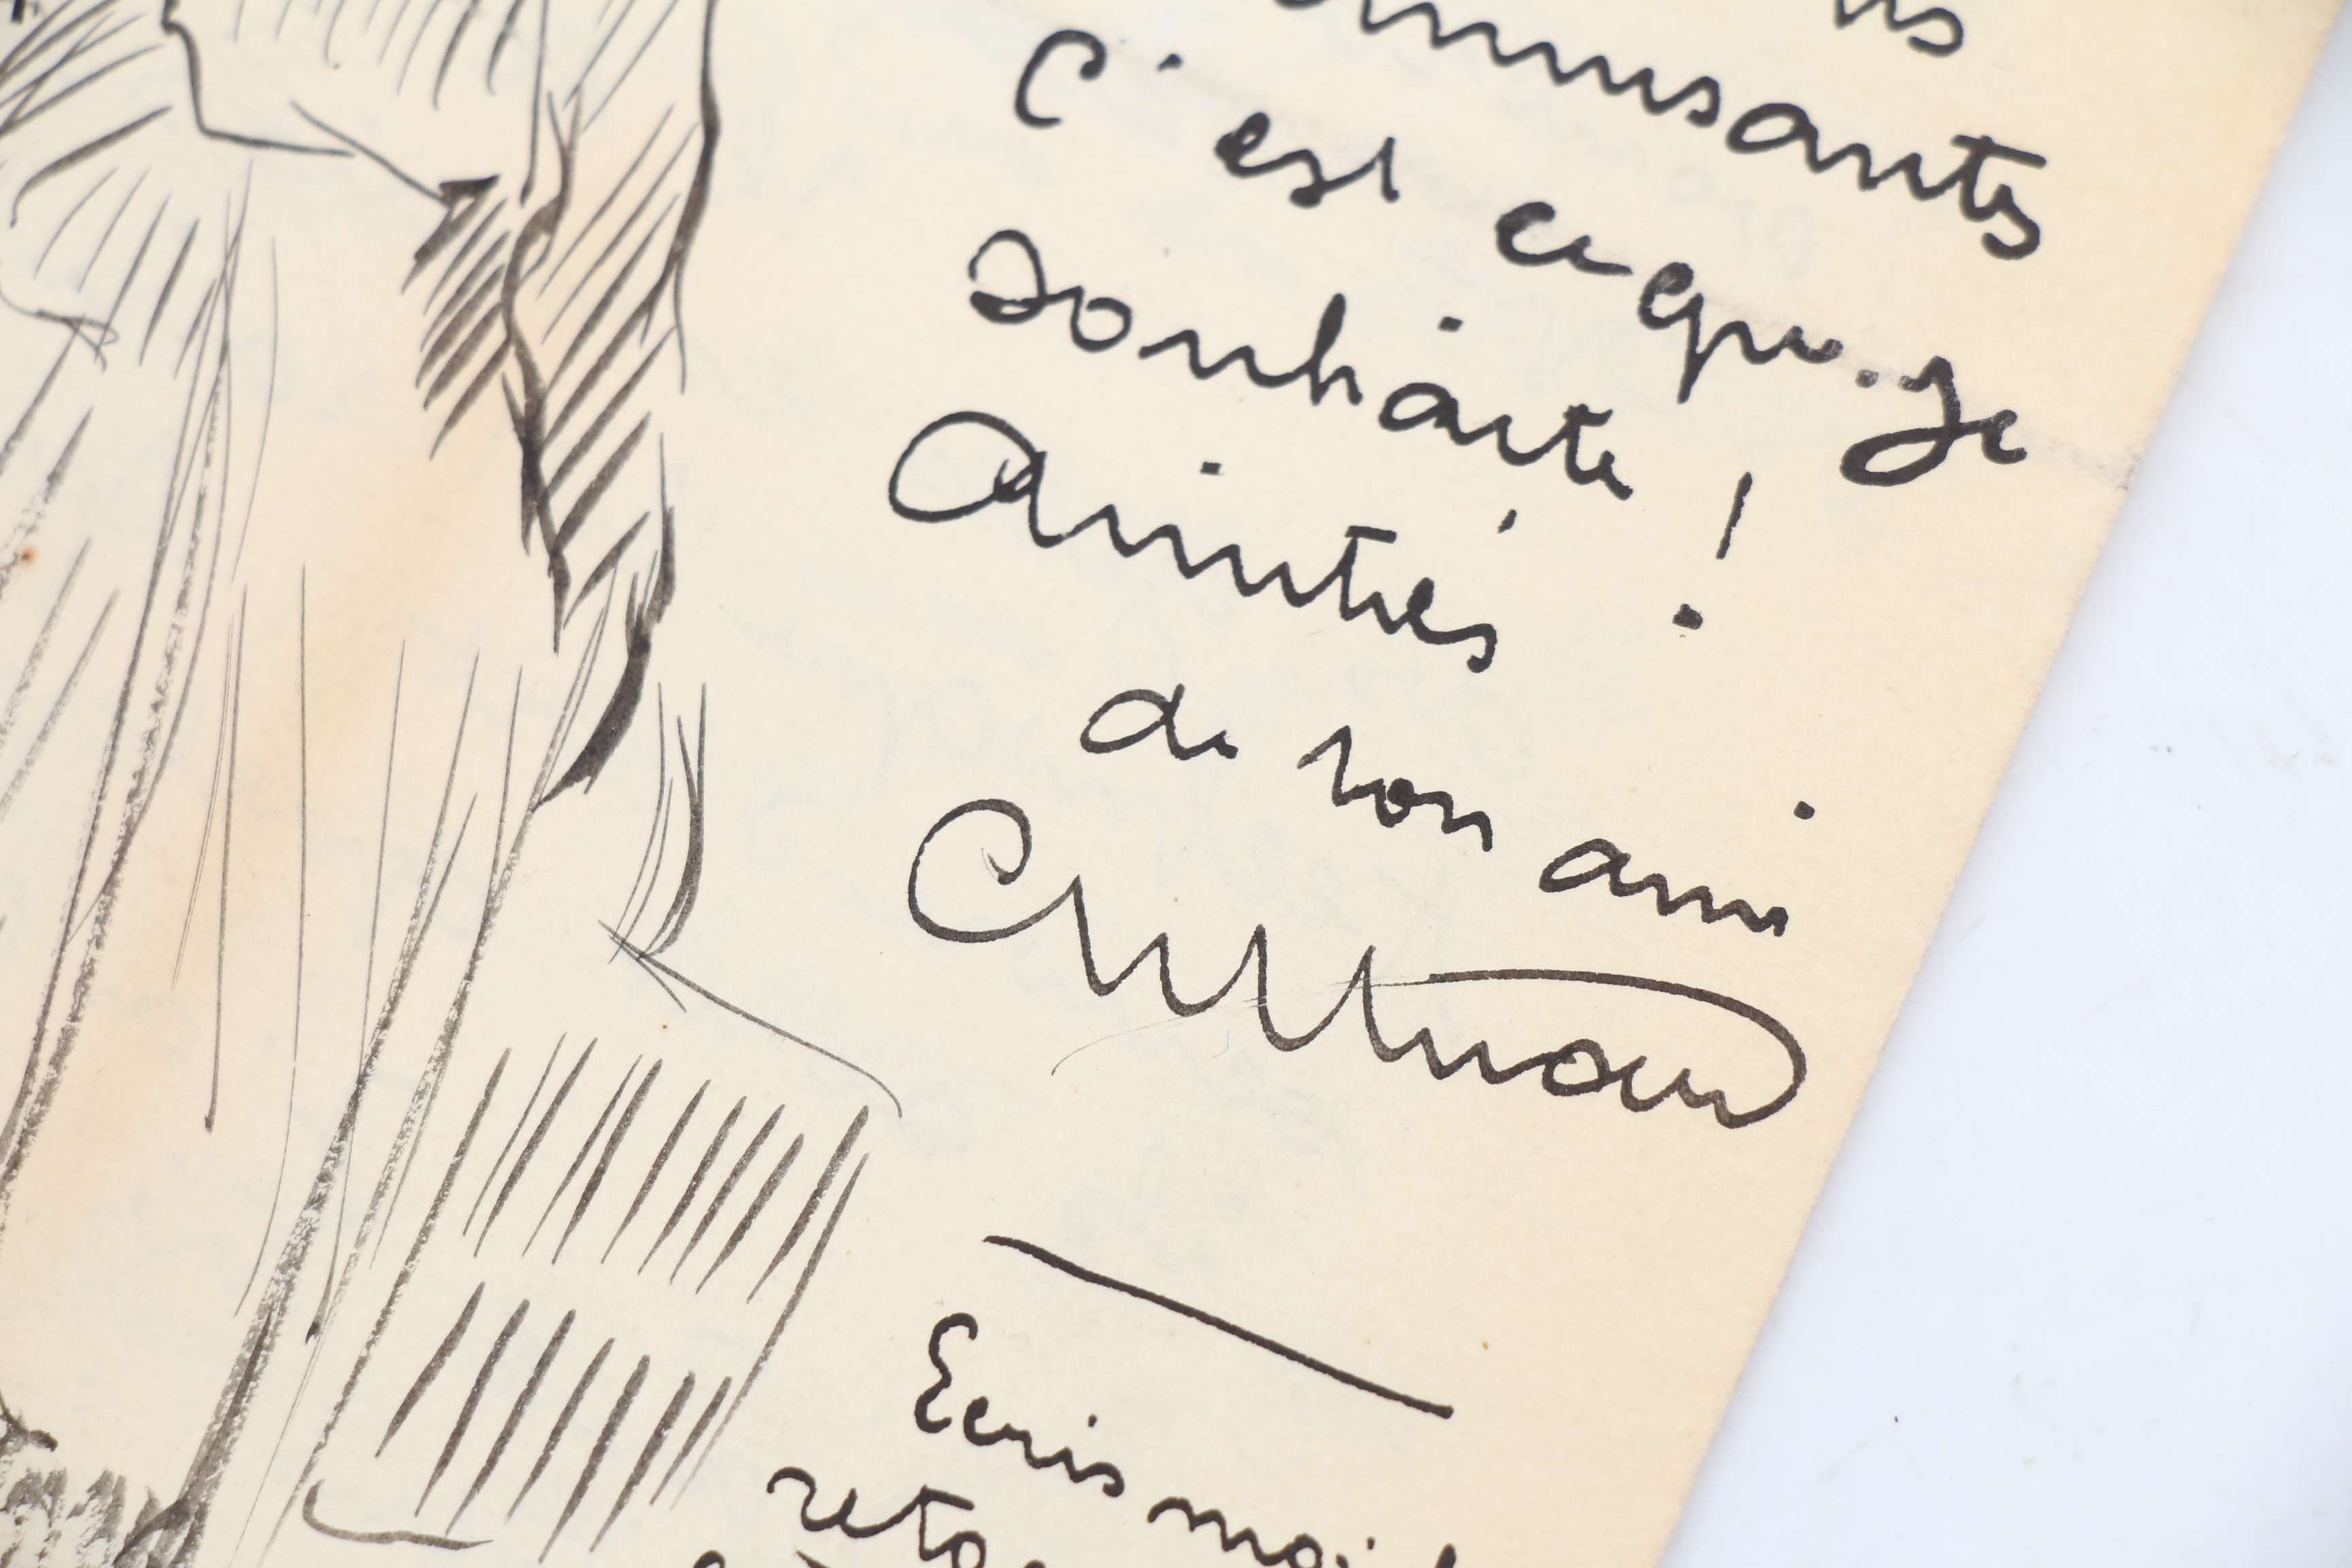 amusantes
C'est ce que je
souhaite !
Amitiés
de ton ami
Ecris moi